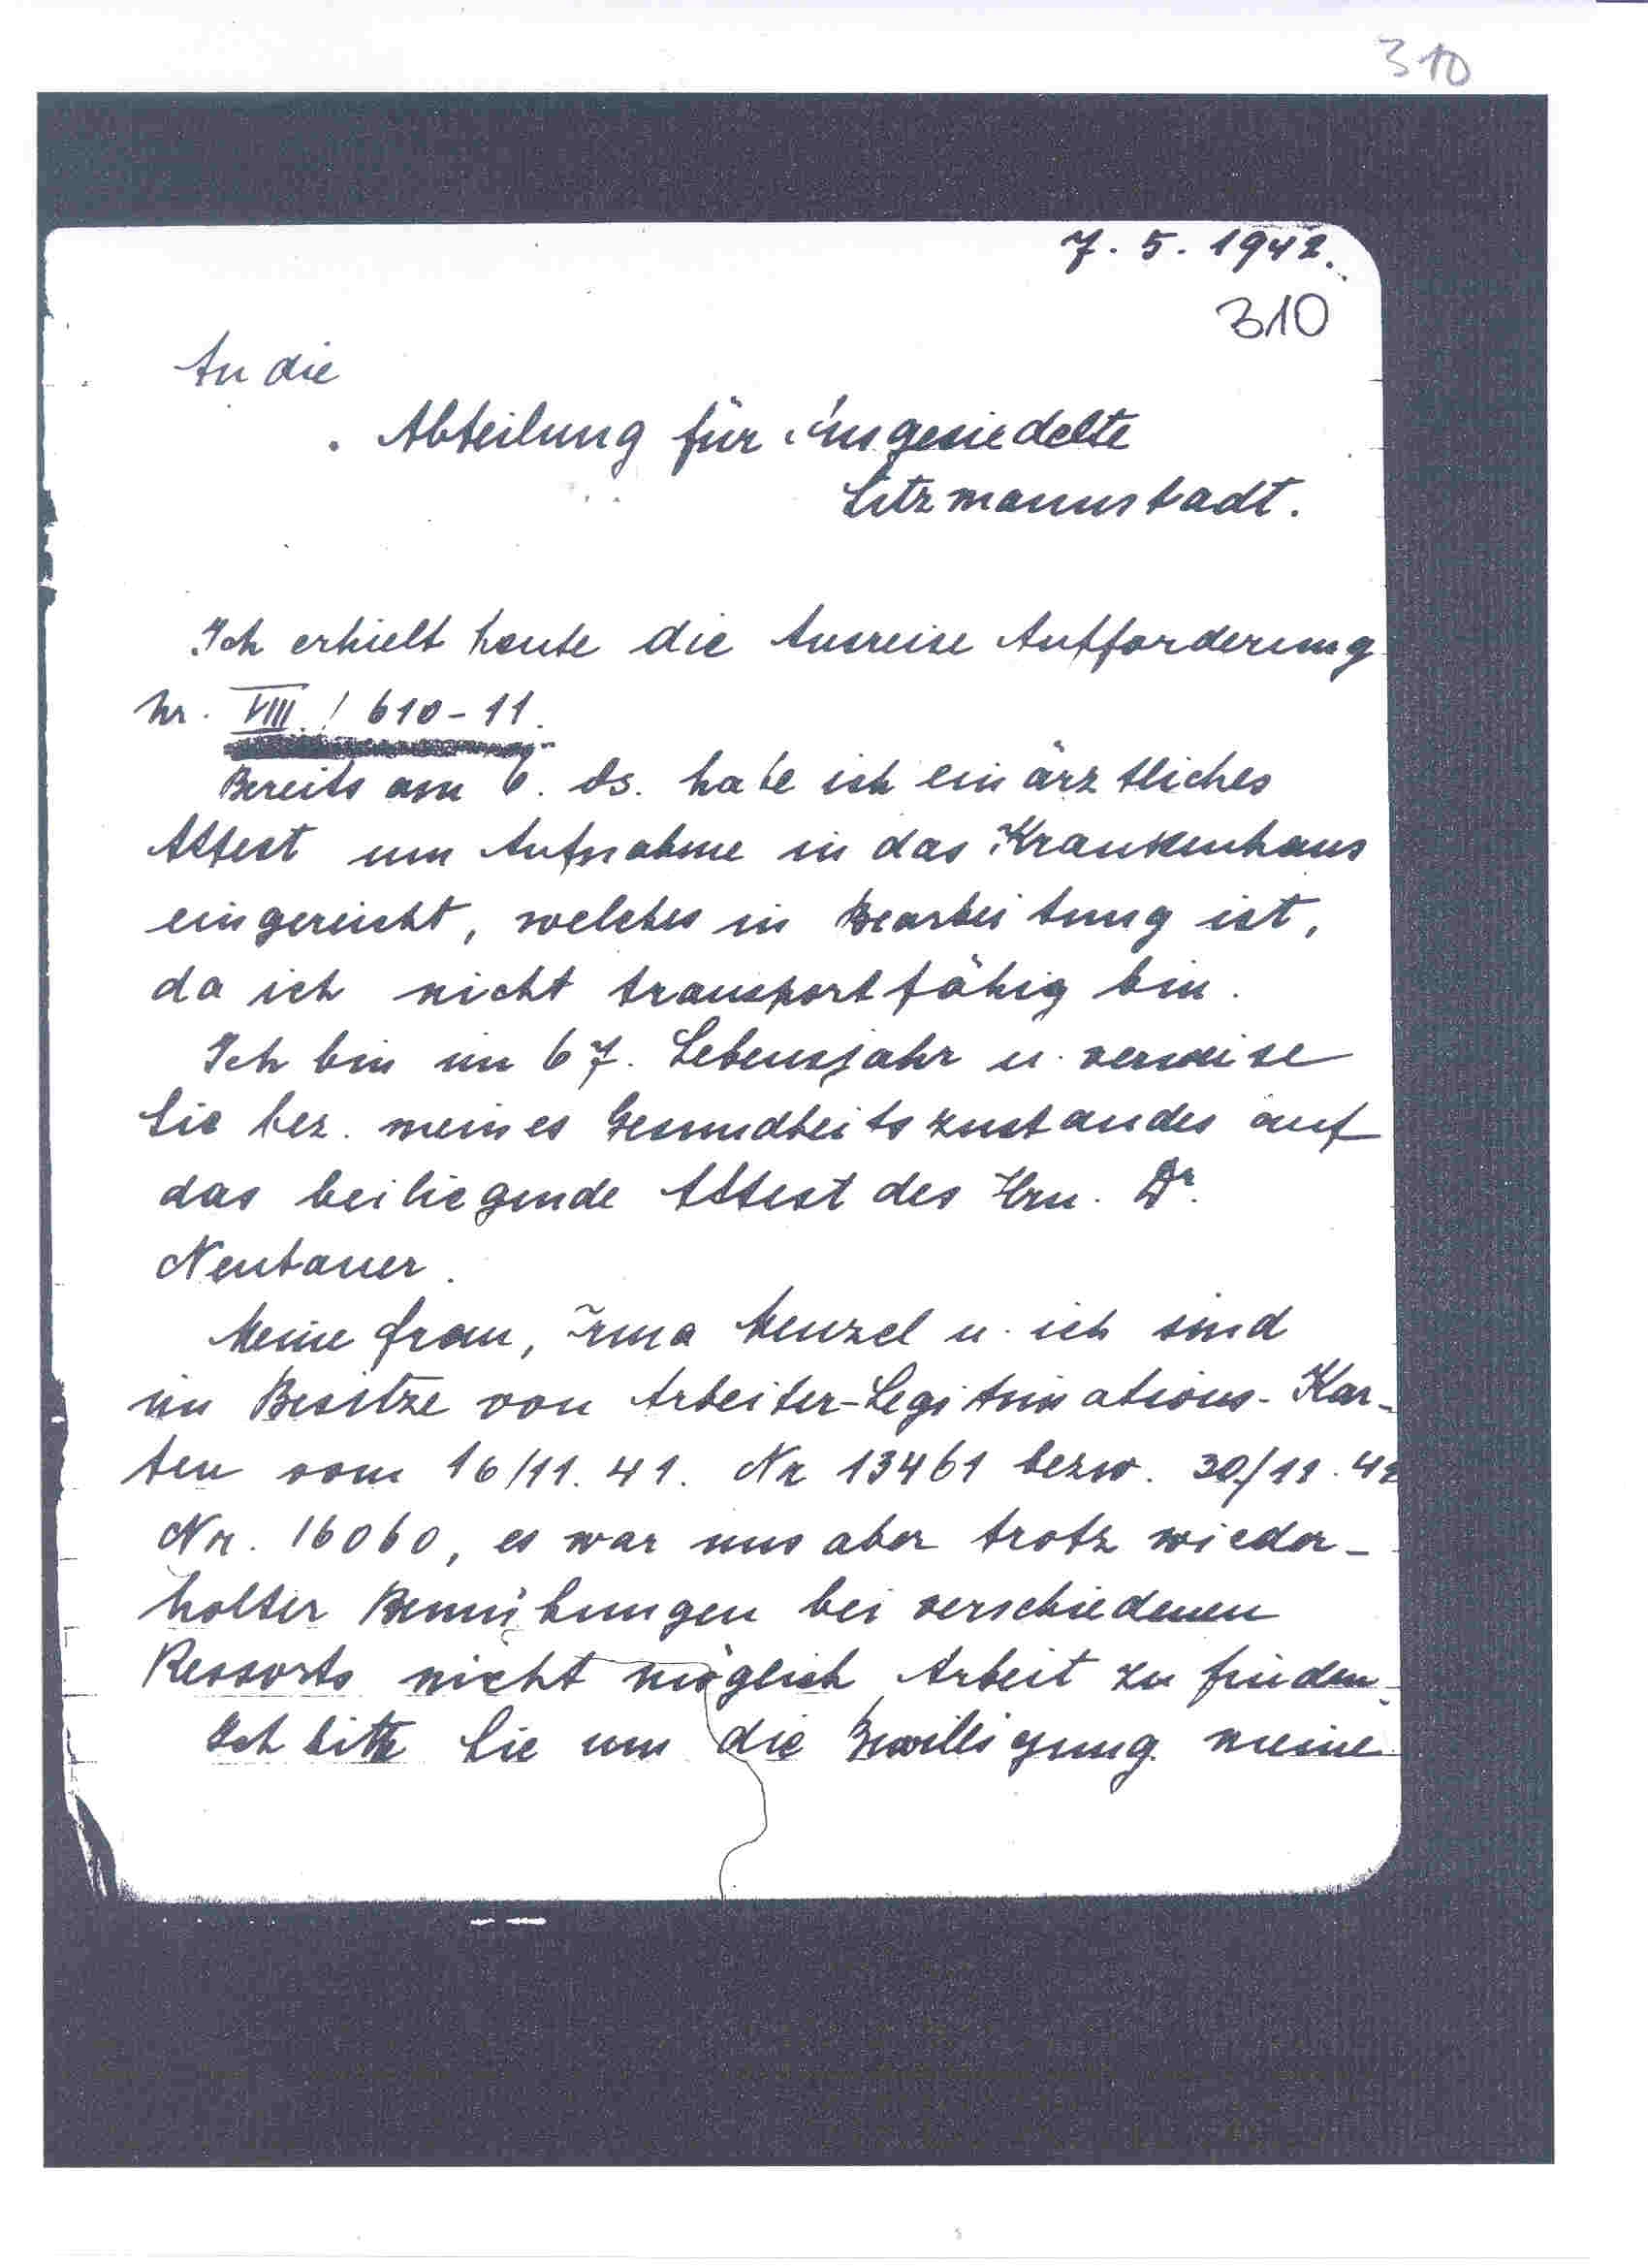 310
7. 5. 1942.
310
An die
Abteilung für Eingesiedelte
Litzmannstadt.
Ich erhielt heute die Ausreise Aufforderung
Nr. VIII / 610-11.
Bereits am 6. ds. habe ich ein ärztliches
Attest um Aufnahme in das Krankenhaus
eingereicht, welches in Bearbeitung ist,
da ich nicht transportfähig bin.
Ich bin im 67. Lebensjahr u. verweise
Sie bez. meines Gesundheitszustandes auf
das beiliegende Attest des Hrn. Dr.
Neubauer.
Meine Frau, Irma Menzel u. ich sind
im Besitze von Arbeiter-Legitimations-Kar-
ten vom 16/11. 41. Nr 13461 bezw. 30/11. 41
Nr. 16060, es war uns aber trotz wieder-
holter Bemühungen bei verschiedenen
Ressorts nicht möglich Arbeit zu finden.
Ich bitte Sie um die Bewilligung meine